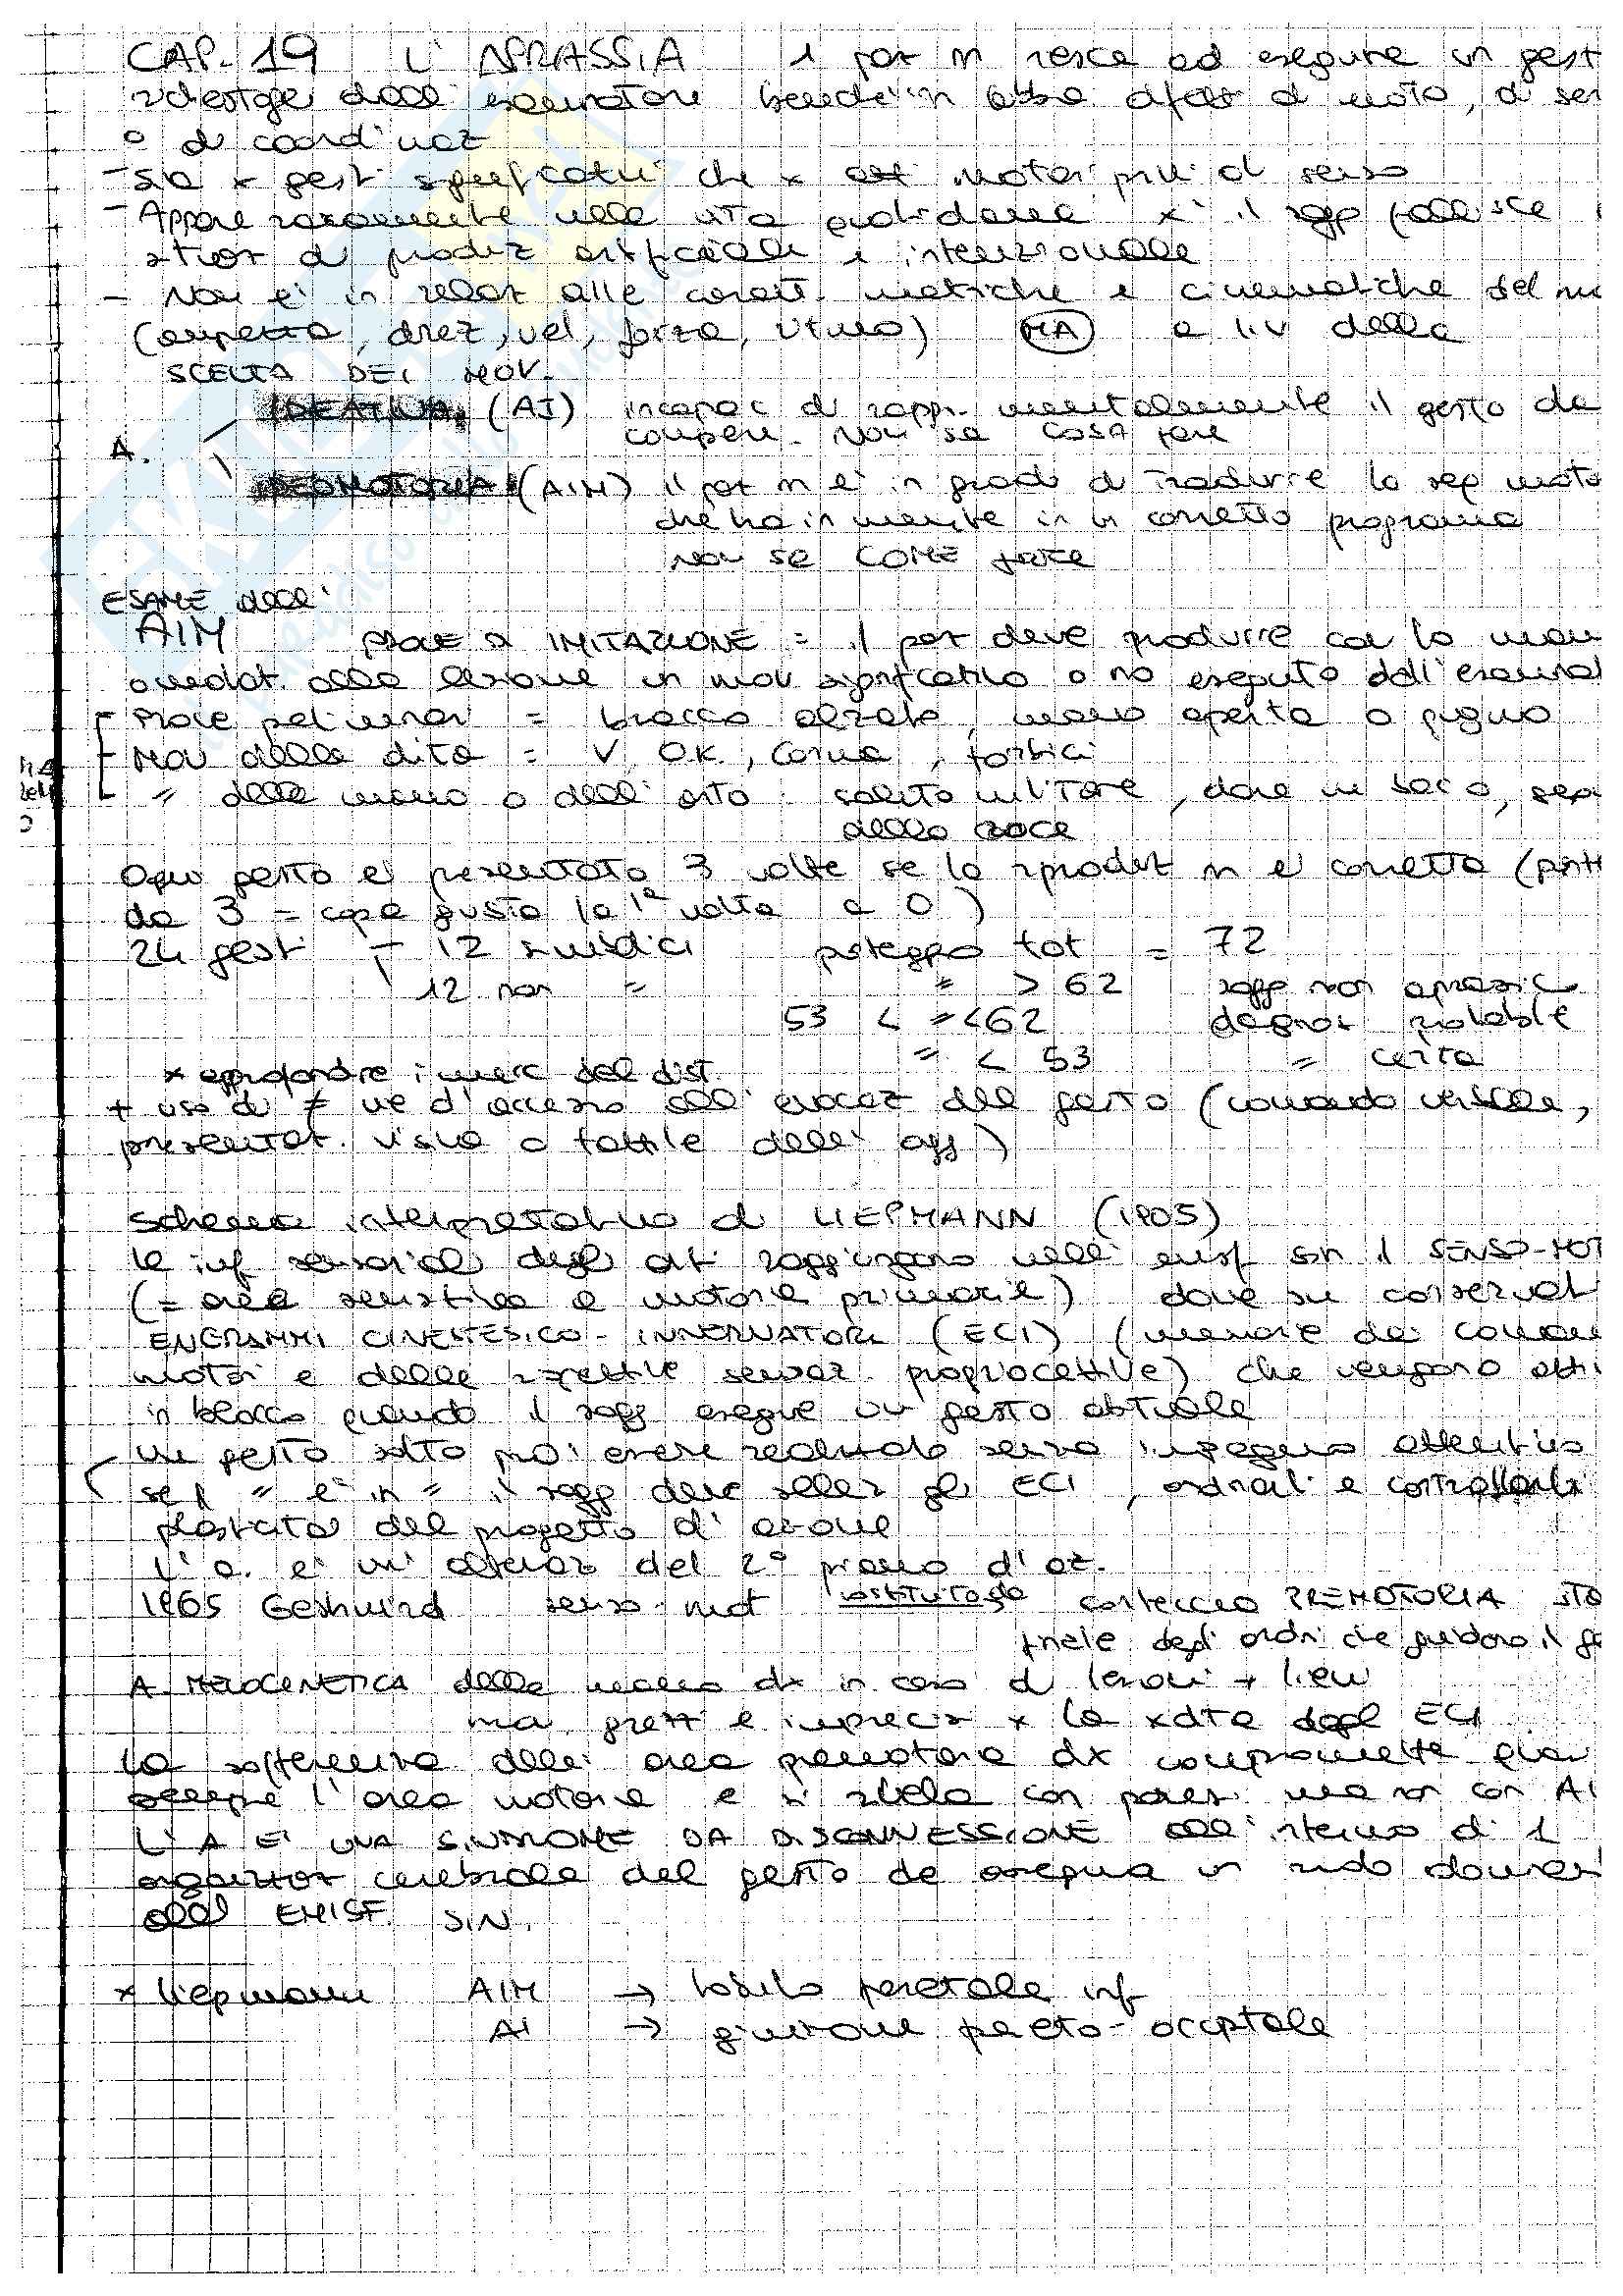 CAP. 19 L'APRASSIA 1 paz n riesce ad eseguire un gest
richiestogli dall'esaminatore benché in abbia difetti di moto, di sen
o di coordinaz
- Sia x gesti significativi che x atti motori privi di senso
- Appare raramente nella vita quotidiana xk il sogg fallisce
situaz di produz artificiale e intenzionale
- Non è in relaz alle caratt. metriche e cinematiche del mo
(ampiezza, direz, vel, forza, ritmo) MA a liv della
SCELTA DEI MOV.
IDEATIVA (AI) incapac di rappr. mentalmente il gesto da
A. compiere. Non sa COSA fare
IDEOMOTORIA (AIM) il paz n è in grado di tradurre la rap moto
che ha in mente in un corretto programma
non sa COME fare
ESAME dell'
AIM PROVE DI IMITAZIONE = il paz deve produrre con la man
omolat. alla lesione un mov significativo o no eseguito dall'esaminat
- Prove preliminari = braccio alzato, mano aperta o pugno
- Mov delle dita = V, OK, corna, forbici
- " della mano o dell'arto: saluto militare, dare un bacio, segn
della croce
Ogni gesto è presentato 3 volte se la riproduz n è corretta (punt
da 3 = copia giusta la 1ª volta a 0)
24 gesti - 12 simbolici punteggio tot = 72
12 non " " > 62 sogg non aprassic
53 < " < 62 diagnosi probabile
" < 53 " certa
x approfondire i mecc del dist.
+ uso di ≠ vie d'accesso all'evocaz del gesto (comando verbale,
presentaz. visiva o tattile dell'ogg)
Schema interpretativo di LIEPMANN (1905)
le inf sensoriali degli atti raggiungono nell'emisf sin il SENSO-MOT
(= aree sensitiva e motoria primarie) dove son conservat
ENGRAMMI CINESTESICO-INNERVATORI (ECI) (memorie dei coman
motori e delle rispettive sensaz. propriocettive) che vengono atti
in blocco quando il sogg esegue un gesto abituale
un gesto solito può essere realizzato senza impegno attentivo
se il " è in " il sogg deve selez gli ECI, ordinarli e controllarli
plasticità del progetto d'azione
L'a. è un'alteraz del 2° passo d'az.
1965 Geshwind senso-mot sostituito da corteccia PREMOTORIA sta
finale degli ordini che guidano il ge
A. MELOCINETICA della mano dx in caso di lesioni + lievi
mov. grezzi e imprecisi x la xdita degli ECI
La sofferenza dell'area premotoria dx compromette quasi
sempre l'area motoria e si rivela con paresi ma non con AI
L'A È UNA SINDROME DA DISCONNESSIONE all'interno di 1
organizzaz cerebrale del gesto che assegna un ruolo dominan
all'EMISF. SIN.
x Liepmann AIM → lobulo parietale inf
AI → giunzione parieto-occipitale